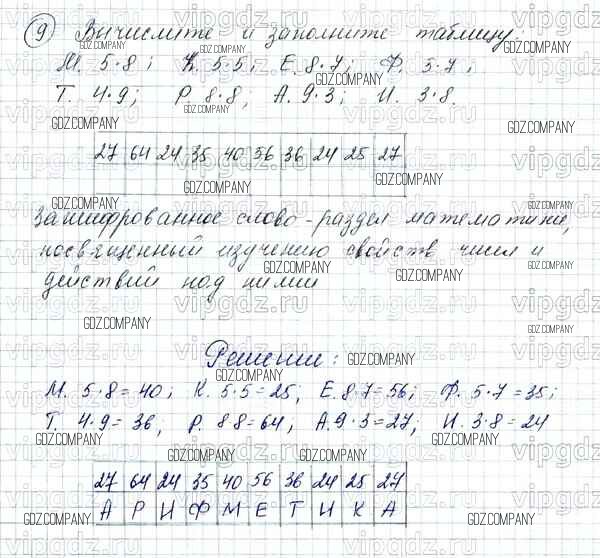 9 Вычислите и заполните таблицу.
М. 5·8; К. 5·5; Е. 8·7; Ф. 5·7;
Т. 4·9; Р. 8·8; А. 9·3; И. 3·8.
27 64 24 35 40 56 36 24 25 27
Зашифрованное слово - раздел математики,
посвященный изучению свойств чисел и
действий над ними
Решение:
М. 5·8=40; К. 5·5=25; Е. 8·7=56; Ф. 5·7=35;
Т. 4·9=36, Р. 8·8=64, А. 9·3=27, И. 3·8=24
27 64 24 35 40 56 36 24 25 27
А Р И Ф М Е Т И К А
vipgdz.ru
GDZ.COMPANY